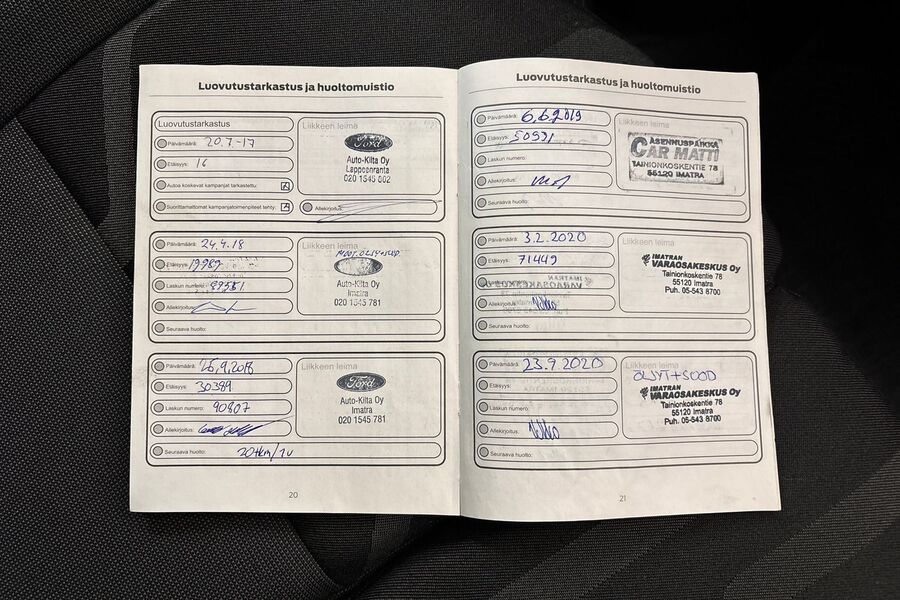 Luovutustarkastus ja huoltomuistio
Luovutustarkastus
Päivämäärä: 20.7-17
Etäisyys: 16
Autoa koskevat kampanjat tarkastettu:
Suorittamattomat kampanjatoimenpiteet tehty:
Liikkeen leima
Ford
Auto-Kilta Oy
Lappeenranta
020 1545 002
Allekirjoitus:
Päivämäärä: 24.4.18
Etäisyys: 19989
Laskun numero:
Allekirjoitus:
Seuraava huolto:
Liikkeen leima
Auto-Kilta Oy
Imatra
020 1545 781
Päivämäärä: 25.9.2018
Etäisyys: 30389
Laskun numero: 90807
Allekirjoitus:
Seuraava huolto: 20tkm/1v
Liikkeen leima
Ford
Auto-Kilta Oy
Imatra
020 1545 781
20
Luovutustarkastus ja huoltomuistio
Päivämäärä: 6.6.2019
Etäisyys: 50931
Laskun numero:
Allekirjoitus:
Seuraava huolto:
Liikkeen leima
ASENNUSPAIKKA
CAR MATTI
TAINIONKOSKENTIE 78
55120 IMATRA
Päivämäärä: 3.2.2020
Etäisyys: 71449
Laskun numero:
Allekirjoitus:
Seuraava huolto:
Liikkeen leima
IMATRAN
VARAOSAKESKUS Oy
Tainionkoskentie 78
55120 Imatra
Puh. 05-543 8700
Päivämäärä: 23.9.2020
Etäisyys:
Laskun numero:
Allekirjoitus:
Seuraava huolto:
Liikkeen leima
ÖLJYT+SOOD
IMATRAN
VARAOSAKESKUS Oy
Tainionkoskentie 78
55120 Imatra
Puh. 05-543 8700
21